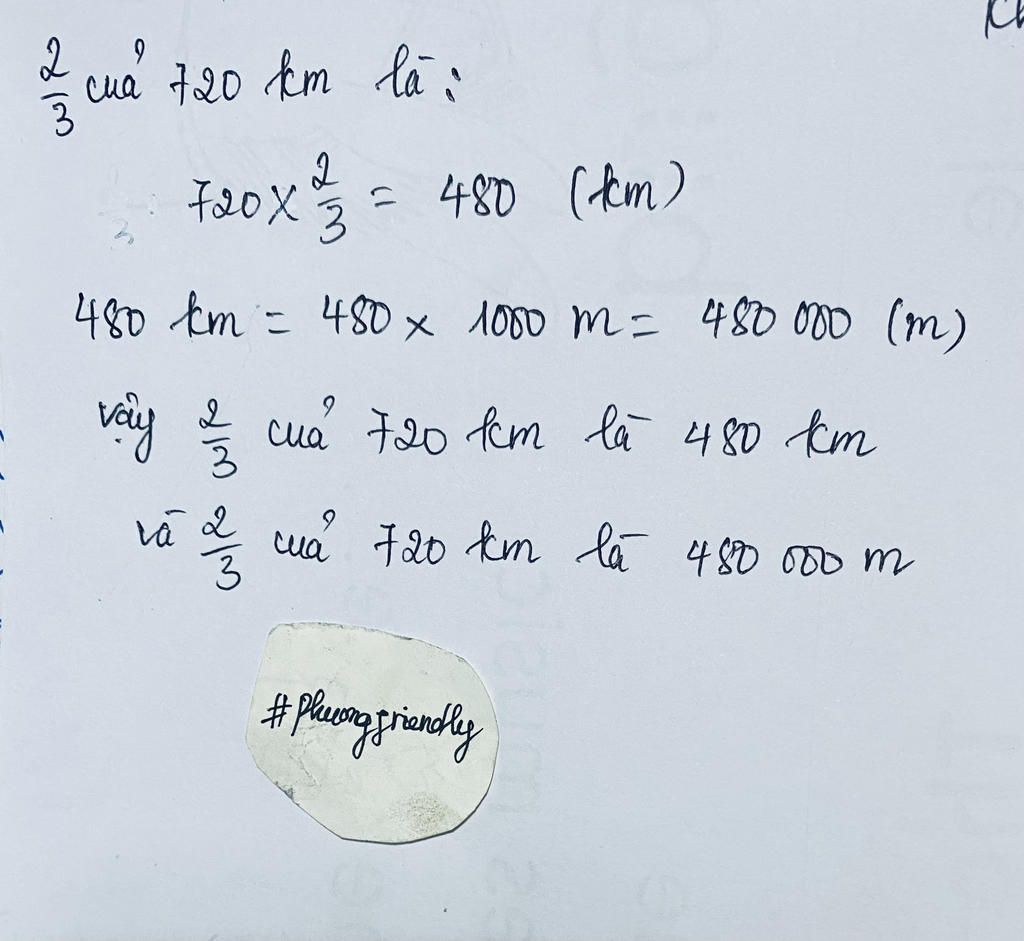 2/3 của 720 km là:
720 x 2/3 = 480 (km)
480 km = 480 x 1000 m = 480 000 (m)
vậy 2/3 của 720 km là 480 km
và 2/3 của 720 km là 480 000 m
#phuongfriendly